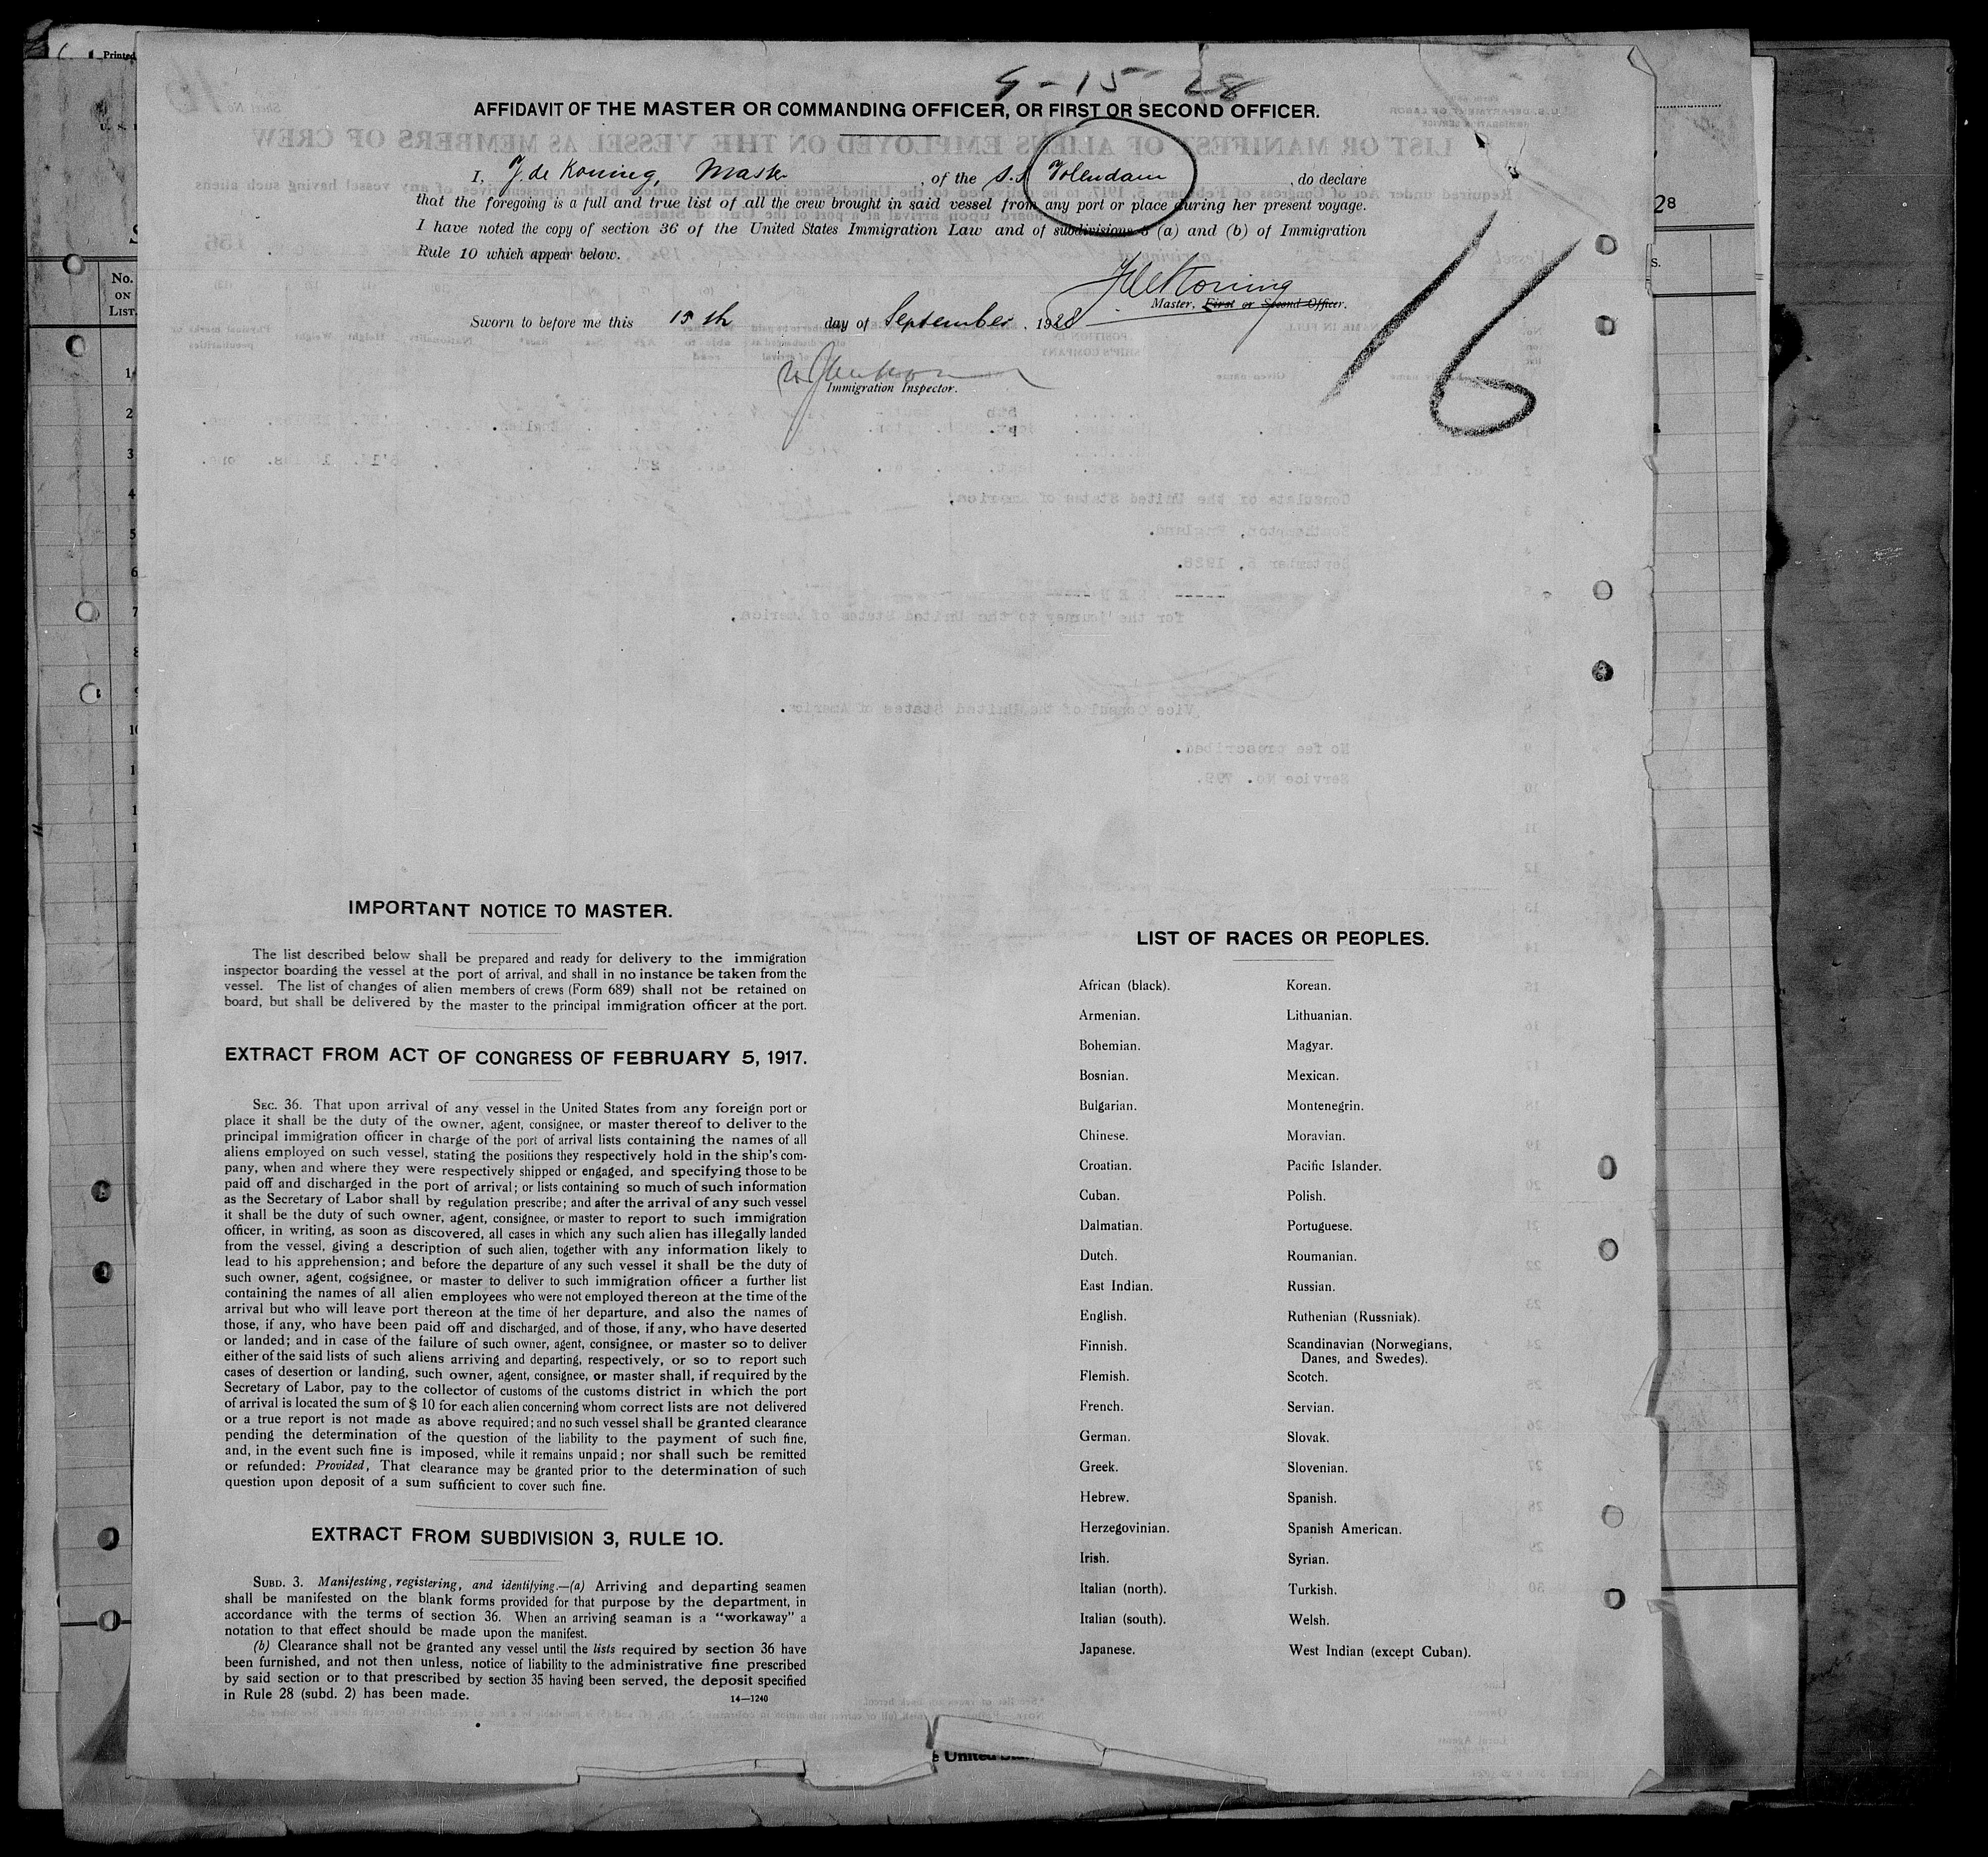 9-15-28
AFFIDAVIT OF THE MASTER OR COMMANDING OFFICER, OR FIRST OR SECOND OFFICER.
I, J. de Koning, Master, of the S.S. Volendam, do declare
that the foregoing is a full and true list of all the crew brought in said vessel from any port or place during her present voyage.
I have noted the copy of section 36 of the United States Immigration Law and of subdivisions 3 (a) and (b) of Immigration
Rule 10 which appear below.
J de Koning
Master, First or Second Officer.
Sworn to before me this 15th day of September, 1928
Immigration Inspector.
16
IMPORTANT NOTICE TO MASTER.
The list described below shall be prepared and ready for delivery to the immigration
inspector boarding the vessel at the port of arrival, and shall in no instance be taken from the
vessel. The list of changes of alien members of crews (Form 689) shall not be retained on
board, but shall be delivered by the master to the principal immigration officer at the port.
EXTRACT FROM ACT OF CONGRESS OF FEBRUARY 5, 1917.
SEC. 36. That upon arrival of any vessel in the United States from any foreign port or
place it shall be the duty of the owner, agent, consignee, or master thereof to deliver to the
principal immigration officer in charge of the port of arrival lists containing the names of all
aliens employed on such vessel, stating the positions they respectively hold in the ship's com-
pany, when and where they were respectively shipped or engaged, and specifying those to be
paid off and discharged in the port of arrival; or lists containing so much of such information
as the Secretary of Labor shall by regulation prescribe; and after the arrival of any such vessel
it shall be the duty of such owner, agent, consignee, or master to report to such immigration
officer, in writing, as soon as discovered, all cases in which any such alien has illegally landed
from the vessel, giving a description of such alien, together with any information likely to
lead to his apprehension; and before the departure of any such vessel it shall be the duty of
such owner, agent, cogsignee, or master to deliver to such immigration officer a further list
containing the names of all alien employees who were not employed thereon at the time of the
arrival but who will leave port thereon at the time of her departure, and also the names of
those, if any, who have been paid off and discharged, and of those, if any, who have deserted
or landed; and in case of the failure of such owner, agent, consignee, or master so to deliver
either of the said lists of such aliens arriving and departing, respectively, or so to report such
cases of desertion or landing, such owner, agent, consignee, or master shall, if required by the
Secretary of Labor, pay to the collector of customs of the customs district in which the port
of arrival is located the sum of $ 10 for each alien concerning whom correct lists are not delivered
or a true report is not made as above required; and no such vessel shall be granted clearance
pending the determination of the question of the liability to the payment of such fine,
and, in the event such fine is imposed, while it remains unpaid; nor shall such be remitted
or refunded: Provided, That clearance may be granted prior to the determination of such
question upon deposit of a sum sufficient to cover such fine.
EXTRACT FROM SUBDIVISION 3, RULE 10.
SUBD. 3. Manifesting, registering, and identifying.—(a) Arriving and departing seamen
shall be manifested on the blank forms provided for that purpose by the department, in
accordance with the terms of section 36. When an arriving seaman is a "workaway" a
notation to that effect should be made upon the manifest.
(b) Clearance shall not be granted any vessel until the lists required by section 36 have
been furnished, and not then unless, notice of liability to the administrative fine prescribed
by said section or to that prescribed by section 35 having been served, the deposit specified
in Rule 28 (subd. 2) has been made.
14—1240
LIST OF RACES OR PEOPLES.
African (black). Korean.
Armenian. Lithuanian.
Bohemian. Magyar.
Bosnian. Mexican.
Bulgarian. Montenegrin.
Chinese. Moravian.
Croatian. Pacific Islander.
Cuban. Polish.
Dalmatian. Portuguese.
Dutch. Roumanian.
East Indian. Russian.
English. Ruthenian (Russniak).
Finnish. Scandinavian (Norwegians,
Danes, and Swedes).
Flemish. Scotch.
French. Servian.
German. Slovak.
Greek. Slovenian.
Hebrew. Spanish.
Herzegovinian. Spanish American.
Irish. Syrian.
Italian (north). Turkish.
Italian (south). Welsh.
Japanese. West Indian (except Cuban).